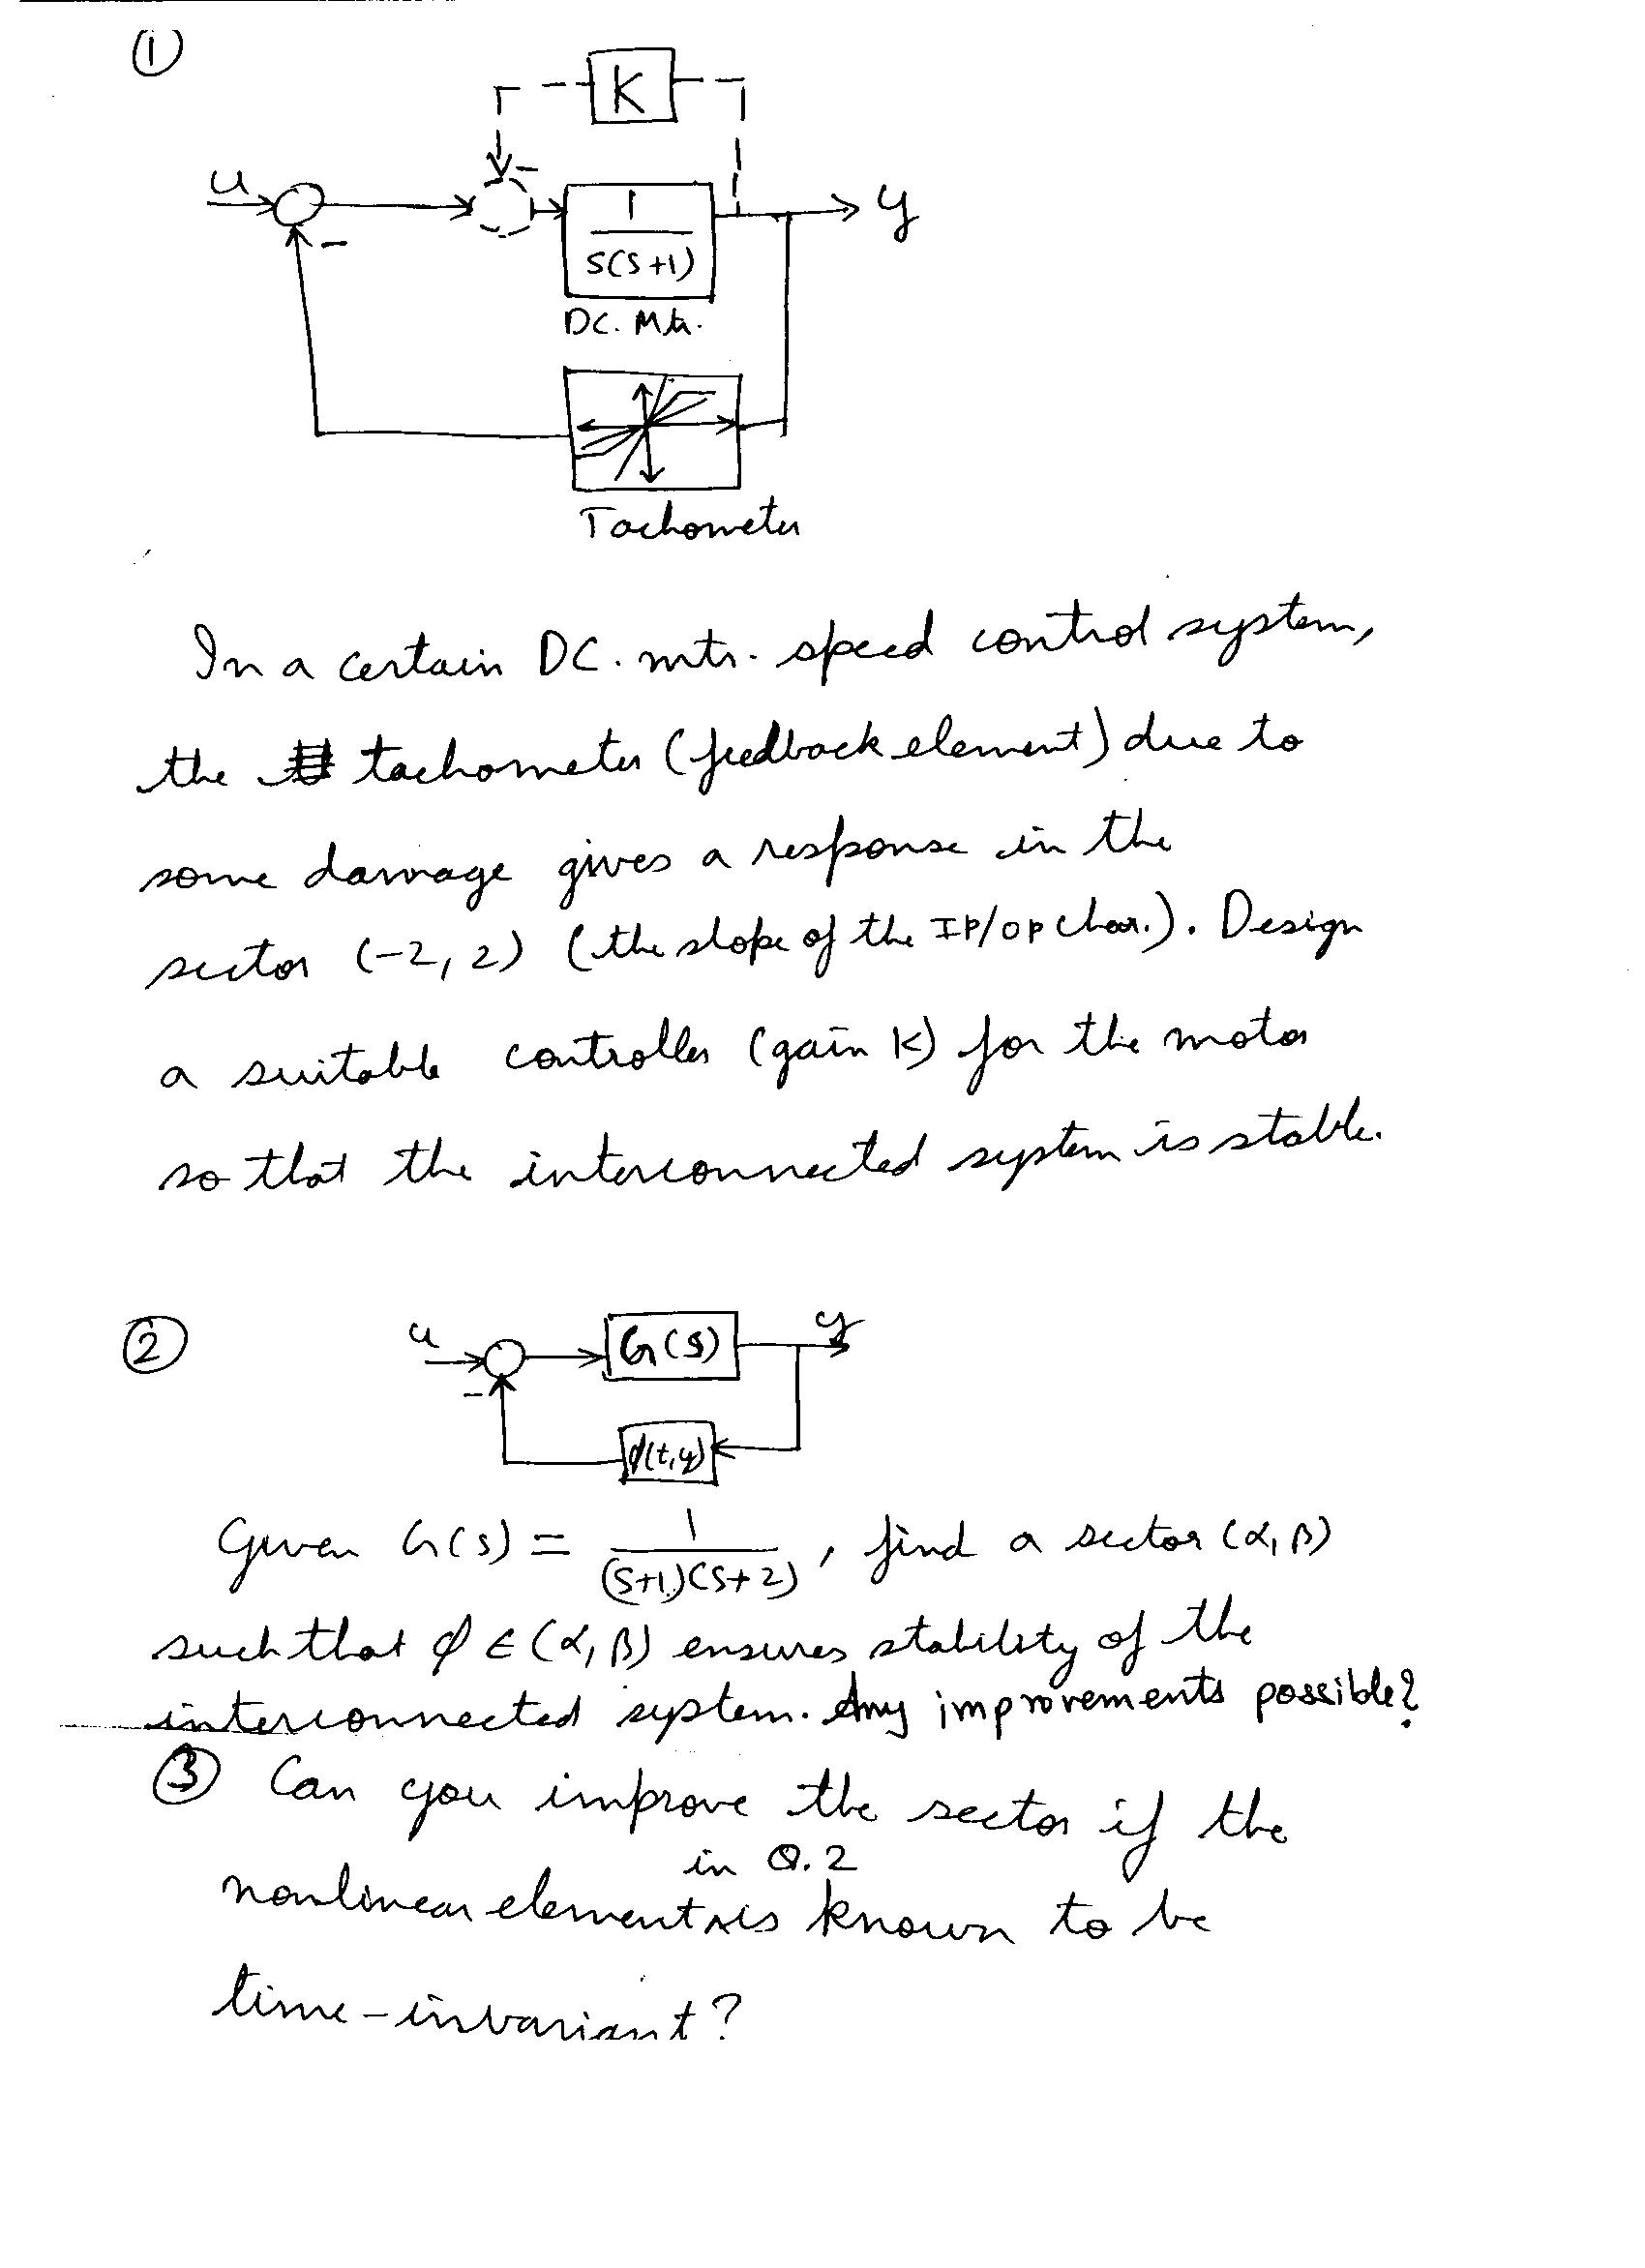 ①
K
-
u
-
1
S(S+1)
y
DC. Mtr.
Tachometer
In a certain DC. mtr. speed control system,
the tachometer (feedback element) due to
some damage gives a response in the
sector (-2, 2) (the slope of the IP/OP char.). Design
a suitable controller (gain K) for the motor
so that the interconnected system is stable.
②
u
-
G(s)
y
ϕ(t,y)
Given G(s) = 1/(S+1)(S+2) , find a sector (α, β)
such that ϕ ∈ (α, β) ensures stability of the
interconnected system. Any improvements possible?
③ Can you improve the sector if the
in Q.2
nonlinear element is known to be
time-invariant?